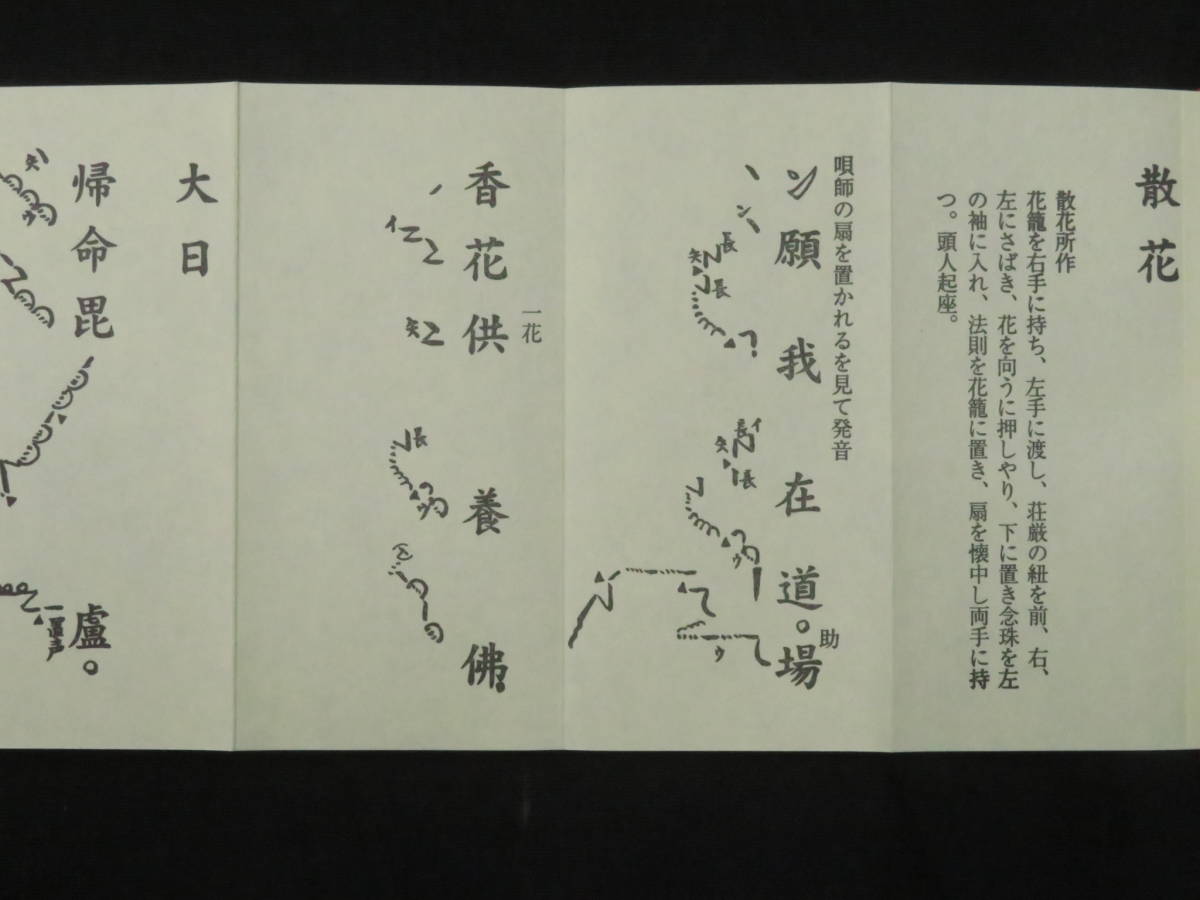 散花
散花所作
花籠を右手に持ち、左手に渡し、荘厳の紐を前、右、
左にさばき、花を向うに押しやり、下に置き念珠を左
の袖に入れ、法則を花籠に置き、扇を懐中し両手に持
つ。頭人起座。
唄師の扇を置かれるを見て発音
願我在道。場
助
一花
香花供養佛
大日
帰命毘盧。